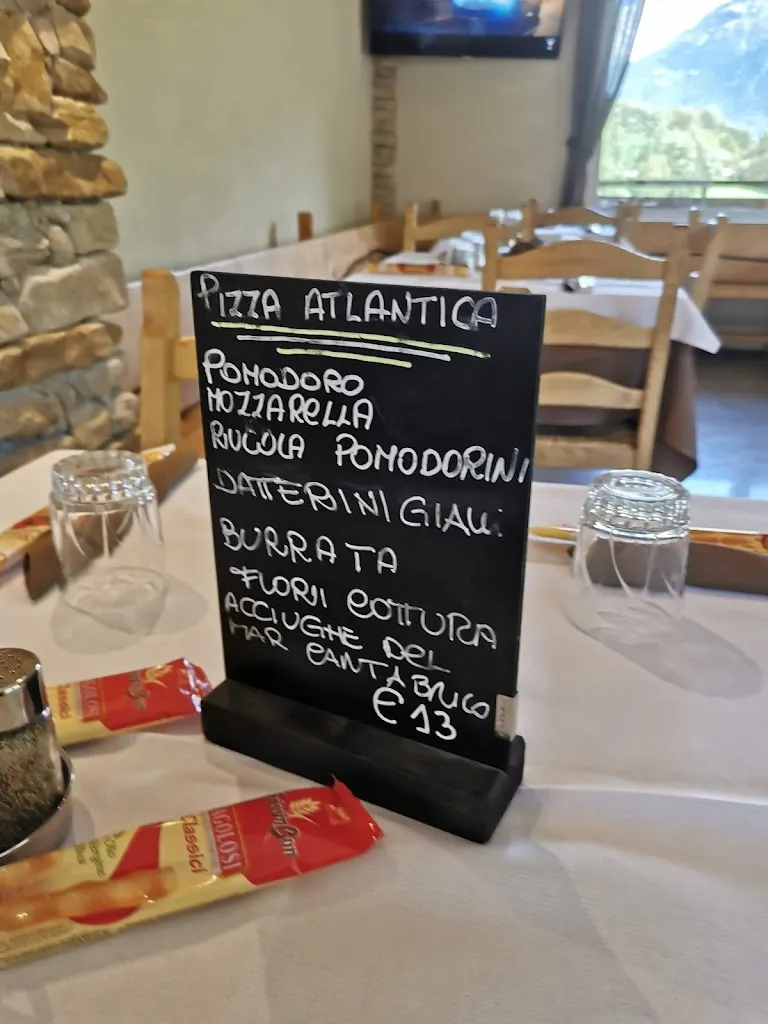 PIZZA ATLANTICA
POMODORO
MOZZARELLA
RUCOLA POMODORINI
DATTERINI GIALLI
BURRATA
FUORI COTTURA
ACCIUGHE DEL
MAR CANTABRICO
€ 13
Classici
GranBon
AGOLOSI
Classici
Olio
Vergine
Oliva